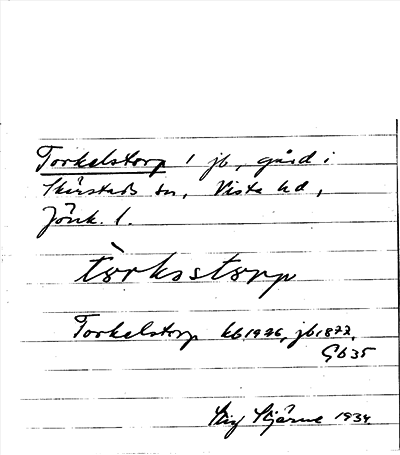 Torkelstorp 1 jb, gård i
Skärstads sn, Vista hd,
Jönk. l.
tòrkstorp
Torkelstorp kb 1926, jb 1877,
Gb 35
Stig Stjärne 1934.